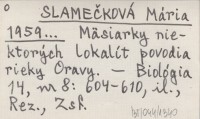 o
SLAMEČKOVÁ Mária
1959... Mäsiarky nie-
ktorých lokalít povodia
rieky Oravy. — Biológia
14, nr 8: 604-610, il.,
Rez., Zsf.